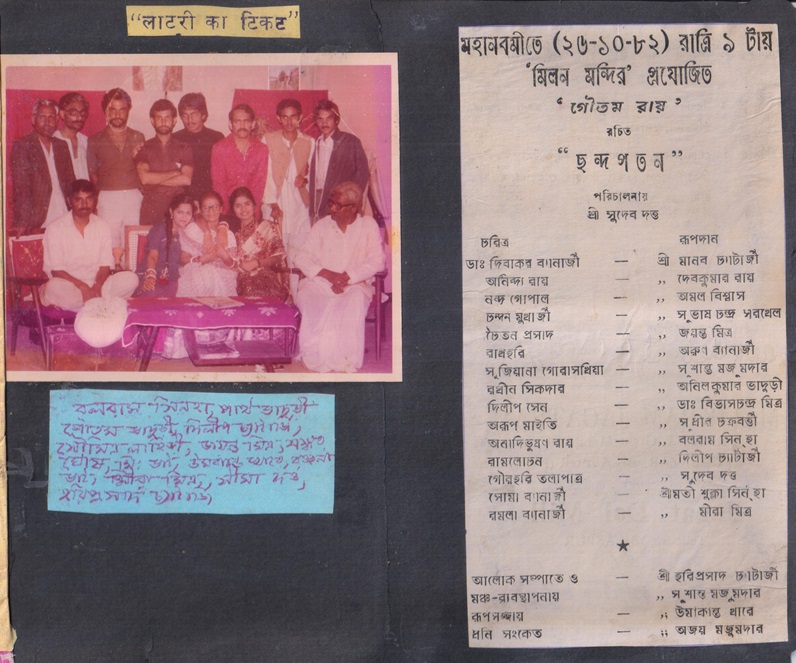 "लाटरी का टिकट"
বলরাম সিনহা, পার্থ ভাদুড়ী
গৌতম ভাদুড়ী, দিলীপ চ্যাটার্জি,
লাহিড়ী, জয়ন্ত মিত্র,
ঘোষ, মিঃ ভাট, উমাকান্ত খারে,
ভাট, মীরা মিত্র, সীমা দত্ত,
হরিপ্রসাদ চ্যাটার্জি
মহানবমীতে (২৬-১০-৮২) রাত্রি ৯ টায়
'মিলন মন্দির' প্রযোজিত
'গৌতম রায়'
রচিত
"ছন্দপতন"
পরিচালনায়
শ্রী সুদেব দত্ত
চরিত্র রূপদান
ডাঃ দিবাকর ব্যানার্জী — শ্রী মানব চ্যাটার্জী
অনিন্দ্য রায় — ,, দেবকুমার রায়
নন্দ গোপাল — ,, অমল বিশ্বাস
চন্দন মুখার্জী — ,, সুভাষ চন্দ্র সরখেল
চৈতন প্রসাদ — ,, জয়ন্ত মিত্র
রামহরি — ,, অরুণ ব্যানার্জী
সুজিয়ানা গোরাসথিয়া — ,, সুশান্ত মজুমদার
রথীন সিকদার — ,, অনিলকুমার ভাদুড়ী
দিলীপ সেন — ,, ডাঃ বিভাসচন্দ্র মিত্র
অরূপ মাইতি — ,, সুধীর চক্রবর্ত্তী
অনাদিভূষণ রায় — ,, বলরাম সিন্‌হা
রামলোচন — ,, দিলীপ চ্যাটার্জী
গৌরহরি তলাপাত্র — ,, সুদেব দত্ত
সোমা ব্যানার্জী — শ্রীমতী শুক্লা সিন্‌হা
রমলা ব্যানার্জী — ,, মীরা মিত্র
★
আলোক সম্পাতে ও — শ্রী হরিপ্রসাদ চ্যাটার্জী
মঞ্চ-ব্যবস্থাপনায় — ,, সুশান্ত মজুমদার
রূপসজ্জায় — ,, উমাকান্ত খারে
ধ্বনি সংকেত — ,, অজয় মজুমদার